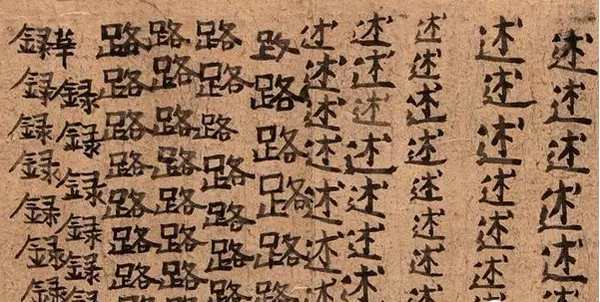 述述述述述
述述述述述述
述述述述述述述述
述述述述述述述
述述述述述述述
路路路路路
路路路路路路路
路路路路路路路
路路路路路路路
草録録録録録
録録録録録録録